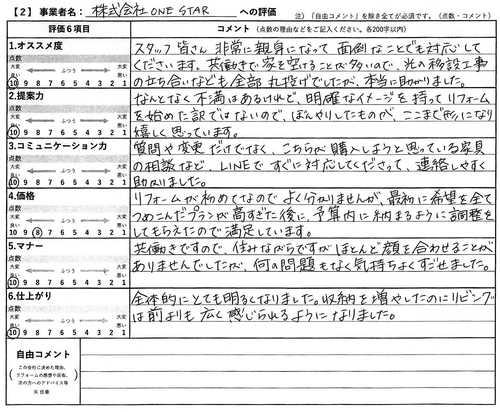 【2】事業者名: 株式会社ONE STAR への評価
注)「自由コメント」を除き全てが必須です。(点数・コメント)
評価6項目
コメント(点数の理由などをご記入ください。各200字以内)
1.オススメ度
点数
大変良い ふつう 大変悪い
10 9 8 7 6 5 4 3 2 1
スタッフ皆さん非常に親身になって面倒なことでも対応して
くださいます。共働きで家を空けることが多いので、光の移設工事
の立ち合いなども全部丸投げでしたが、本当に助かりました。
2.提案力
点数
大変良い ふつう 大変悪い
10 9 8 7 6 5 4 3 2 1
なんとなく不満はあるけれど、明確なイメージを持ってリフォーム
を始めた訳ではないので、ぼんやりしたものが、ここまで形になり
嬉しく思っています。
3.コミュニケーション力
点数
大変良い ふつう 大変悪い
10 9 8 7 6 5 4 3 2 1
質問や変更だけでなく、こちらが購入しようと思っている家具
の相談など、LINEですぐに対応してくださって、連絡しやすく
助かりました。
4.価格
点数
大変良い ふつう 大変悪い
10 9 8 7 6 5 4 3 2 1
リフォームが初めてなのでよく分かりませんが、最初に希望を全て
つめこんだプランが高すぎた後に、予算内に納まるように調整を
してもらえたので満足しています。
5.マナー
点数
大変良い ふつう 大変悪い
10 9 8 7 6 5 4 3 2 1
共働きですので、住みながらですがほとんど顔を合わせることが
ありませんでしたが、何の問題もなく気持ちよくすごせました。
6.仕上がり
点数
大変良い ふつう 大変悪い
10 9 8 7 6 5 4 3 2 1
全体的にとても明るくなりました。収納を増やしたのにリビング
は前よりも広く感じられるようになりました。
自由コメント
この会社に決めた理由、
リフォームの感想や反省、
次の方へのアドバイス等
※任意